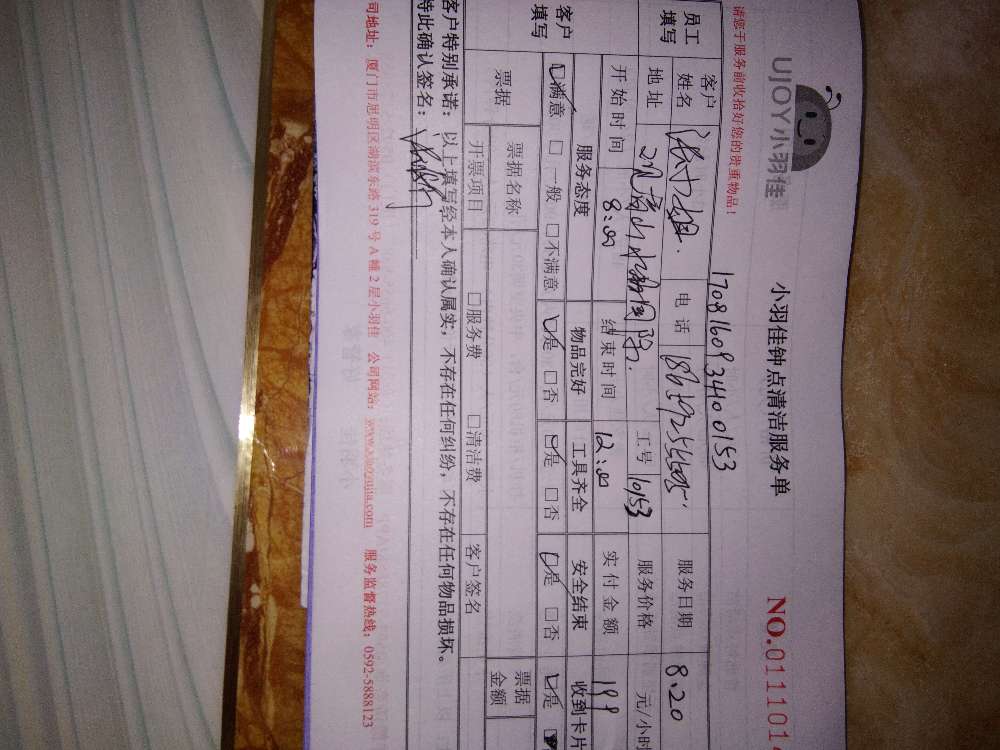 UJOY小羽佳
小羽佳钟点清洁服务单
NO.011101
请您于服务前收拾好您的贵重物品！
170816093400153
员工填写
客户姓名
电话
服务日期 8.20
地址
工号 10153
服务价格 元/小时
开始时间 8:00
结束时间 12:00
实付金额 199
客户填写
服务态度 物品完好 工具齐全 安全结束 收到卡片
□满意 □一般 □不满意 □是 □否 □是 □否 □是 □否 □是
票据
票据名称
票据金额
开票项目 □服务费 □清洁费 客户签名
客户特别承诺：以上填写经本人确认属实，不存在任何纠纷，不存在任何物品损坏。
特此确认签名：
司地址：厦门市思明区湖滨东路319号A幢2层小羽佳 公司网站：www.xiaoyujia.com 服务监督热线：0592-5888123